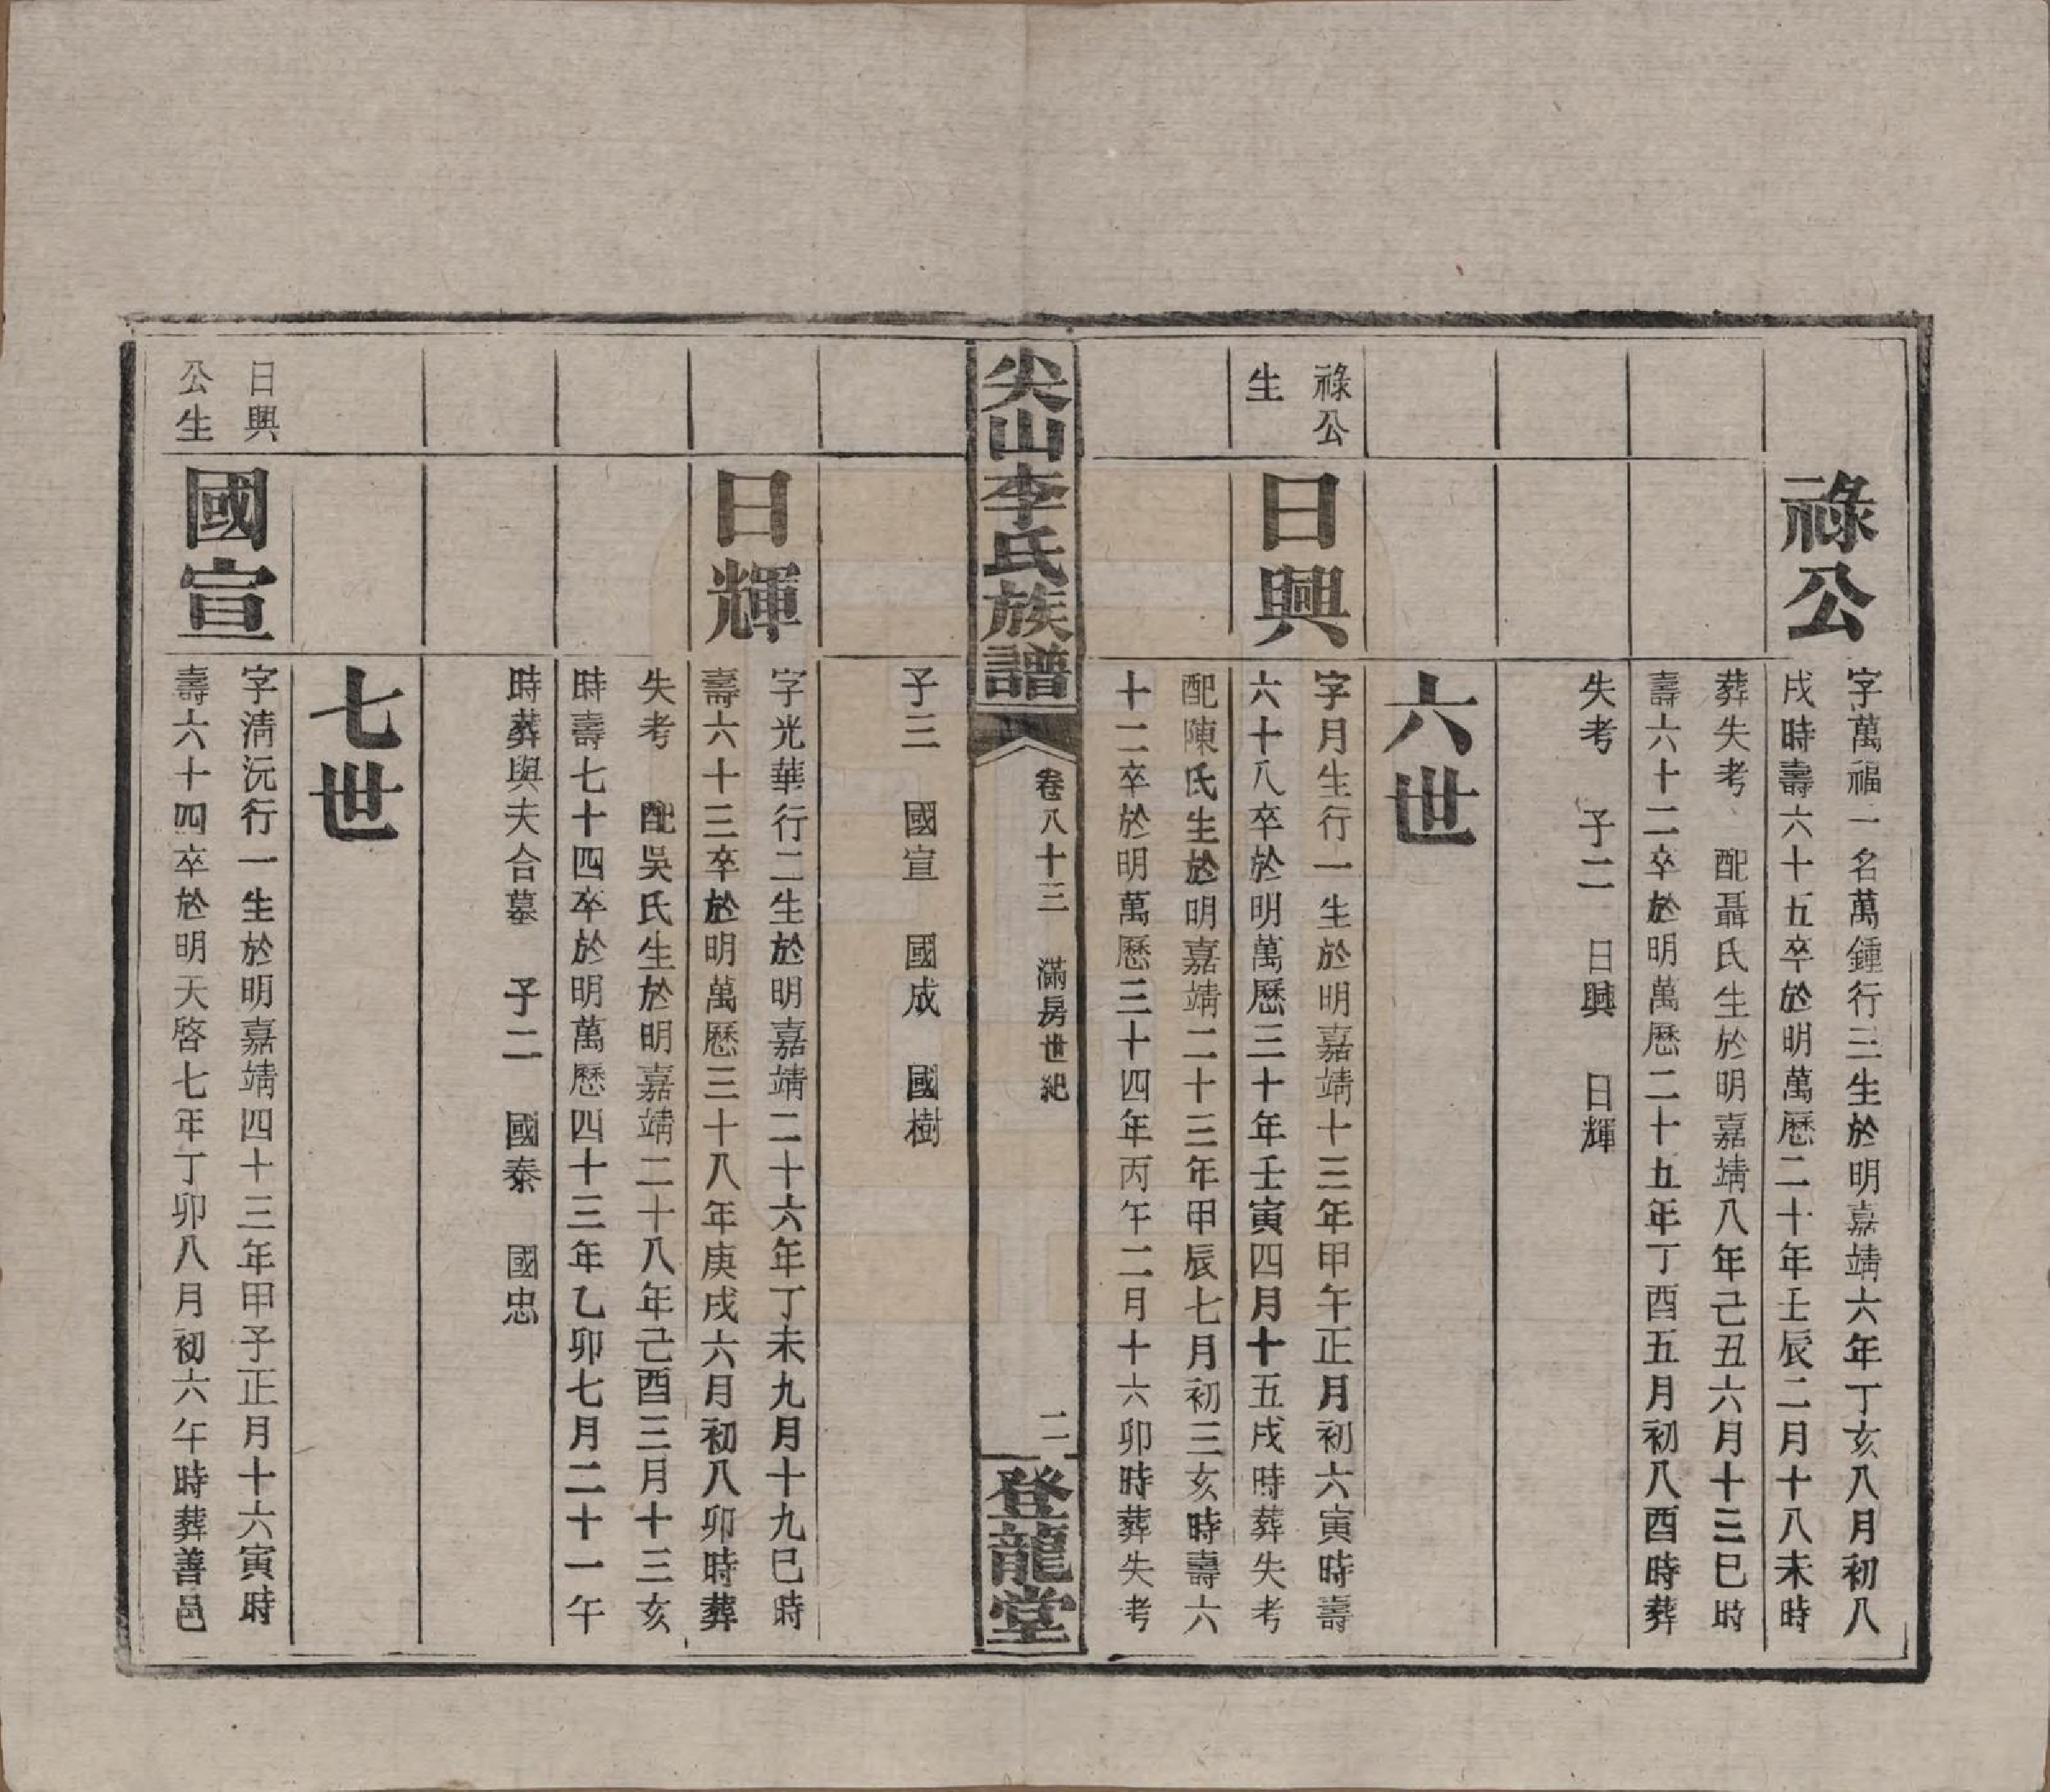 祿公
字萬福一名萬鍾行三生於明嘉靖六年丁亥八月初八
戌時壽六十五卒於明萬歷二十年壬辰二月十八未時
葬失考 配聶氏生於明嘉靖八年己丑六月十三巳時
壽六十二卒於明萬歷二十五年丁酉五月初八酉時葬
失考 子二 日興 日輝
六世
祿公
生
日興
字月生行一生於明嘉靖十三年甲午正月初六寅時壽
六十八卒於明萬歷三十年壬寅四月十五戌時葬失考
配陳氏生於明嘉靖二十三年甲辰七月初三亥時壽六
十二卒於明萬歷三十四年丙午二月十六卯時葬失考
尖山李氏族譜
卷八十三 滿房世紀
二
登龍堂
子三 國宣 國成 國樹
日輝
字光華行二生於明嘉靖二十六年丁未九月十九巳時
壽六十三卒於明萬歷三十八年庚戌六月初八卯時葬
失考 配吳氏生於明嘉靖二十八年己酉三月十三亥
時壽七十四卒於明萬歷四十三年乙卯七月二十一午
時葬與夫合墓 子二 國泰 國忠
七世
日興
公生
國宣
字清沅行一生於明嘉靖四十三年甲子正月十六寅時
壽六十四卒於明天啓七年丁卯八月初六午時葬善邑